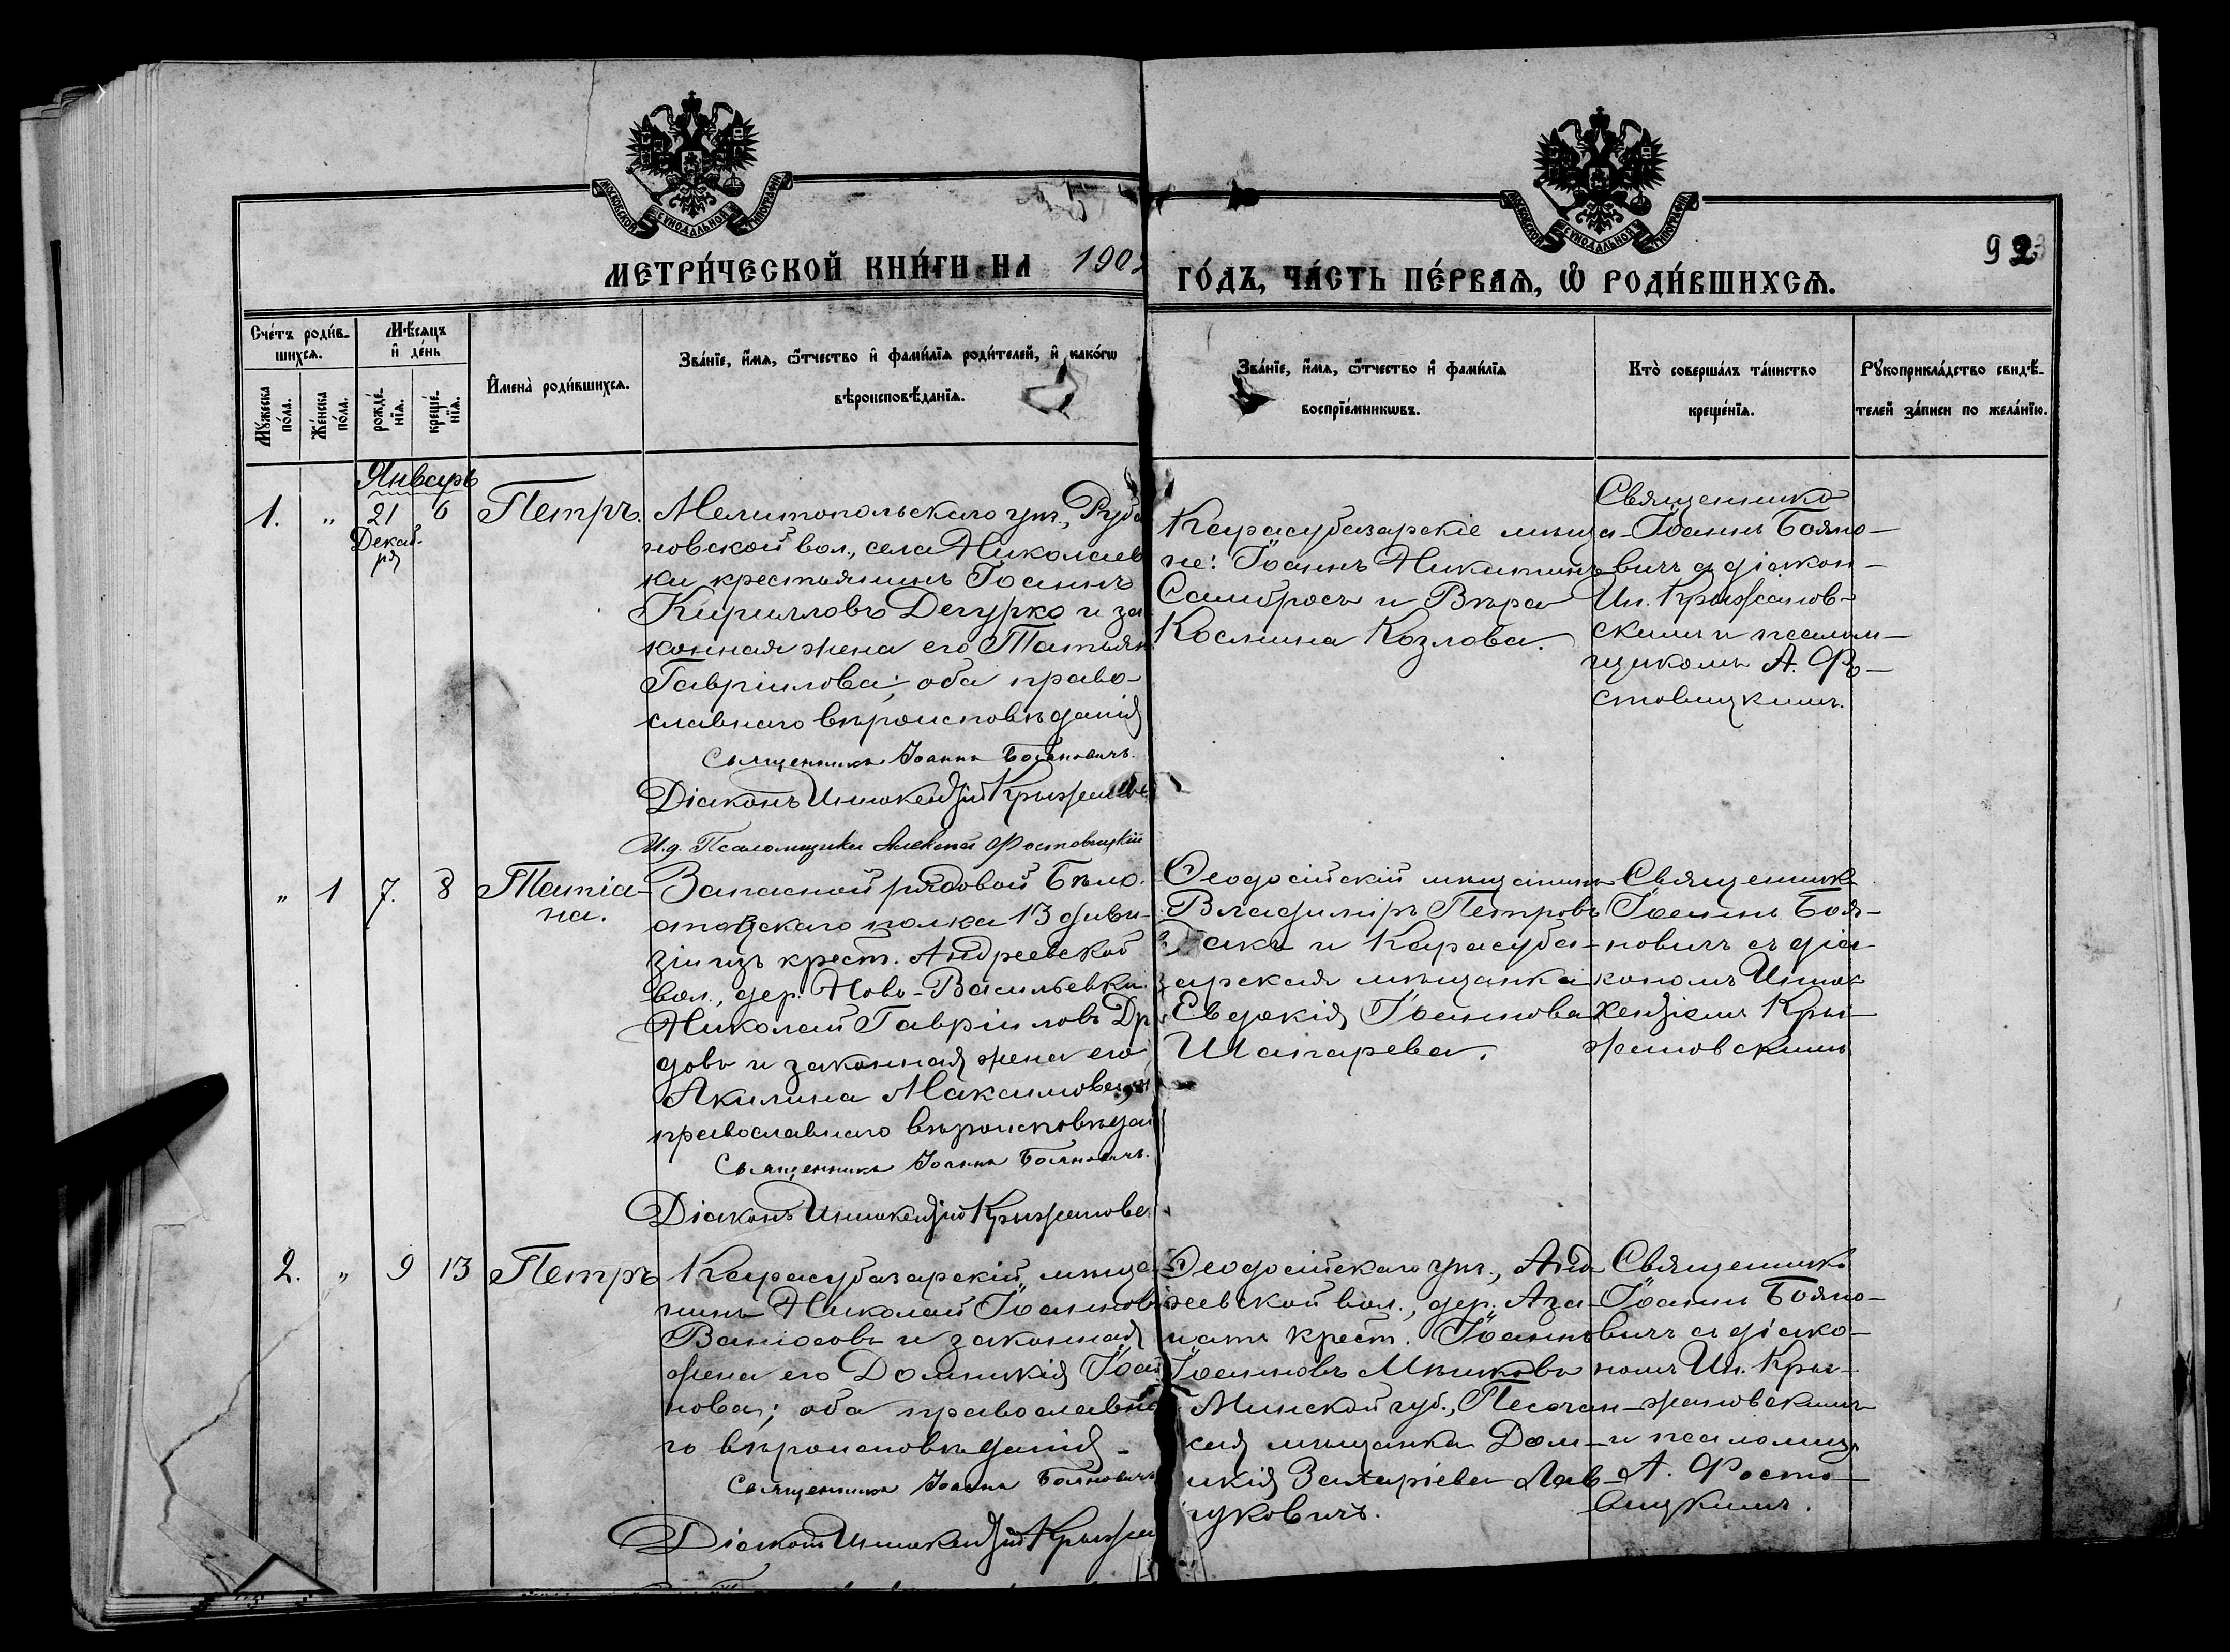 МОСКОВСКОЙ СѴНОДАЛЬНОЙ ТИПОГРАФІИ
МОСКОВСКОЙ СѴНОДАЛЬНОЙ ТИПОГРАФІИ
92
МЕТРИ́ЧЕСКОЙ КНИ́ГИ НА 1902
ГО́ДЪ, ЧА́СТЬ ПЕ́РВАѦ, Ѡ҆ РОДИ́ВШИХСѦ.
Сче́тъ роди́в-
шихсѧ.
Мꙋ́жеска
по́ла.
Же́нска
по́ла.
Мѣ́сѧцъ
и҆ де́нь
рожде́-
нїѧ.
креще́-
нїѧ.
И҆мена̀ роди́вшихсѧ.
Зва́нїе, и҆́мѧ, ѻ҆́тчество и҆ фами́лїѧ роди́телей, и҆ како́гѡ
вѣроисповѣ́данїѧ.
Зва́нїе, и҆́мѧ, ѻ҆́тчество и҆ фами́лїѧ
воспрїе́мникѡвъ.
Кто̀ соверша́лъ та́инство
креще́нїѧ.
Рꙋкоприкла́дство свидѣ́-
телей за́писи по жела́нїю.
Январь
1. " 21 6 Петръ.
Декаб-
ря
Мелитопольскаго уѣз., Руба
новской вол., села Николаев
ки крестьянинъ Іоаннъ
Кирилловъ Дегурко и за
конная жена его Татьян
Гавріилова; оба право-
славнаго вѣроисповѣданія
Священникъ Іоаннъ Бояновичъ.
Діаконъ Иннокентій Крыжановс
И.д. Псаломщика Алексѣй Фостовицкій
Карасубазарскіе мѣща-
не: Іоаннъ Никитинъ
Самбросъ и Вѣра
Космина Козлова.
Священникъ
Іоаннъ Бояно-
вичъ съ діакон-
Ин. Крыжанов-
скимъ и псалом-
щикомъ А. Фо-
стовицкимъ.
" 1 7. 8 Татіа-
на.
Запасной рядовой Бѣло-
стокскаго полка 13 диви-
зіи изъ крест. Андреевской
вол., дер. Ново-Васильевки
Николай Гавріиловъ Др
довъ и законная жена его
Акилина Максимова;
православнаго вѣроисповѣдан
Священникъ Іоаннъ Бояновичъ.
Діаконъ Иннокентій Крыжановс
Ѳеодосійскій мѣщанинъ
Владиміръ Петровъ
и Карасуба-
зарская мѣщанка
Евдокія Іоаннова
Шапарева.
Священникъ
Іоаннъ Боя-
новичъ съ діа-
кономъ Инно-
кентіемъ Кры-
жановскимъ
2. " 9 13 Петръ
Карасубазарскій мѣща
нинъ Николай Іоанновъ
Ванюсовъ и законная
жена его Домникія Іоан
нова; оба православна
го вѣроисповѣданія-
Священникъ Іоаннъ Бояновичъ
Діаконъ Иннокентій Крыжа
Ѳеодосійскаго уѣз., Анд-
реевской вол., дер. Аза-
матъ крест. Іоаннъ
Іоанновъ Мѣшковъ
Минской губ., Песочан-
ская мѣщанка Дом-
никія Захаріева Лав-
уковичъ.
Священникъ
Іоаннъ Бояно-
вичъ съ діако-
номъ Ин. Кры-
жановскимъ
и псаломщ.
А. Фосто-
вицкимъ.